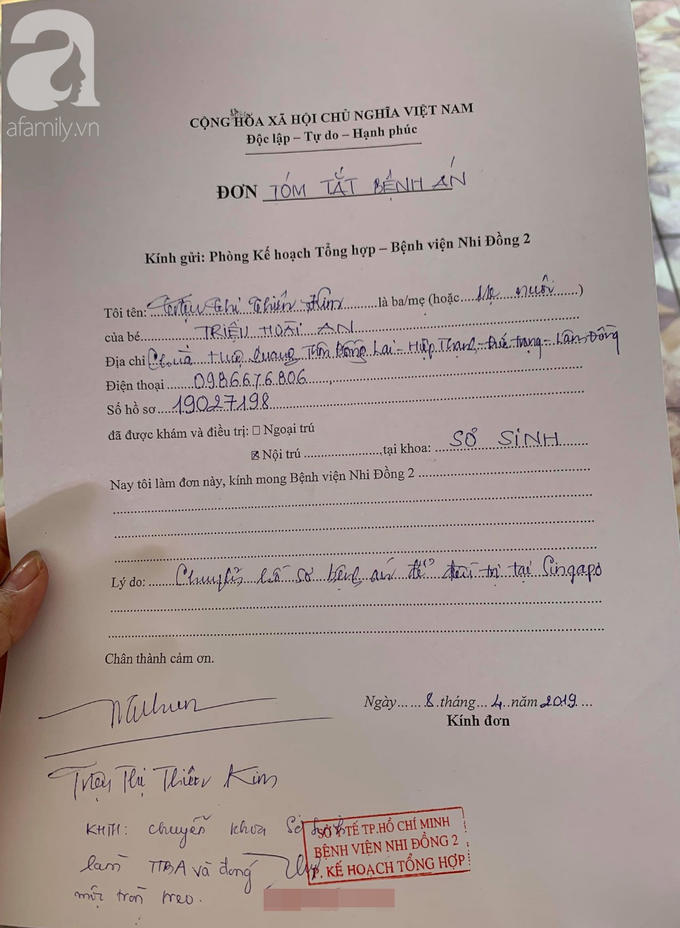 a
afamily.vn
CỘNG HÒA XÃ HỘI CHỦ NGHĨA VIỆT NAM
Độc lập – Tự do – Hạnh phúc
ĐƠN TÓM TẮT BỆNH ÁN
Kính gửi: Phòng Kế hoạch Tổng hợp – Bệnh viện Nhi Đồng 2
Tôi tên: Triệu Thị Thiên Kim là ba/mẹ (hoặc Mẹ nuôi )
của bé TRIỆU HOÀI AN
Địa chỉ Chùa Quang Thôn Đồng Lai - Hiệp Thạnh - Đức Trọng - Lâm Đồng
Điện thoại 0986676806
Số hồ sơ 19027198
đã được khám và điều trị: ☐ Ngoại trú
☒ Nội trú ,tại khoa: SƠ SINH
Nay tôi làm đơn này, kính mong Bệnh viện Nhi Đồng 2
Lý do: Chuyển hồ sơ bệnh án để điều trị tại Singapo
Chân thành cảm ơn.
Ngày 8 tháng 4 năm 2019
Kính đơn
Triệu Thị Thiên Kim
KHTH: chuyển khoa Sơ Sinh
làm TTBA và đóng
mộc tròn treo.
SỞ Y TẾ TP.HỒ CHÍ MINH
BỆNH VIỆN NHI ĐỒNG 2
P. KẾ HOẠCH TỔNG HỢP